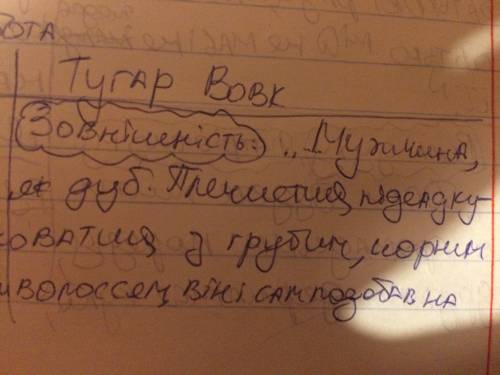 бота
Тугар Вовк
Зовнішність: „Мужчина,
як дуб. Плечистий, підсадку-
оватий з грубим, чорним
волоссям, він і сам подобав на